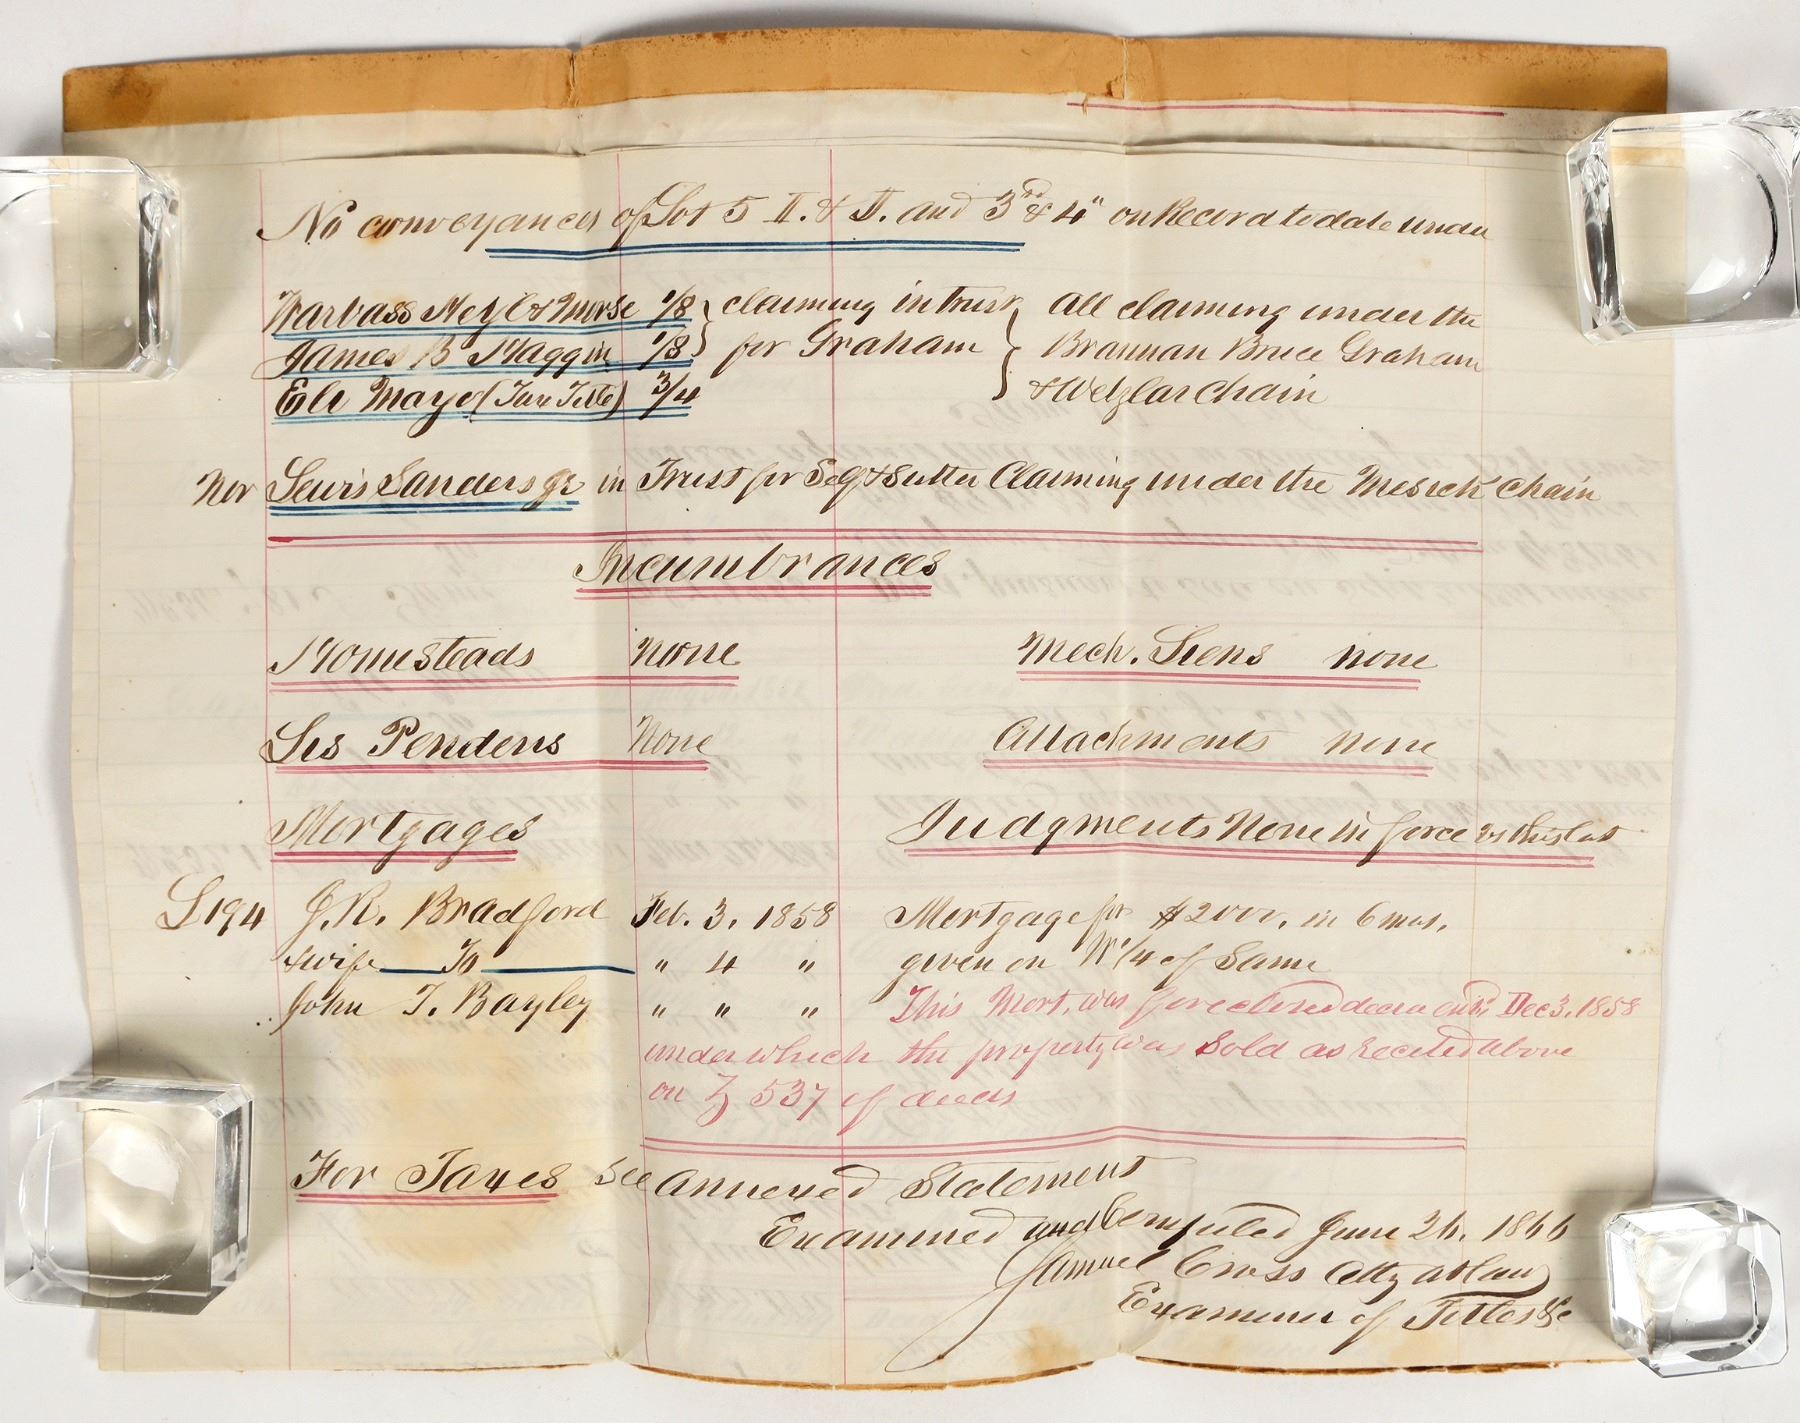 No conveyances of Lot 5 I. & J. and 3rd & 4" on Record to date under
Warbass Neyl & Morse 1/8 } claiming in trust } All claiming under the
James B Haggin 1/8 } for Graham } Brannan Bruce Graham
Eli Mayo (Tax Title) 3/4 & Wetzlar Chain
Nor Lewis Sanders jr in Trust for Self & Sutter Claiming under the Mesick Chain
Incumbrances
Homesteads None Mech. Liens none
Lis Pendens None Attachments none
Mortgages Judgments None in force vs this lot
L 194 J. R. Bradford Feb. 3. 1858 Mortgage for $2000. in 6 mos.
& wife To " 4 " given on W 1/4 of Same
John T. Bayley " " " This Mort. was foreclosed decree entd Dec 3. 1858
under which the property was Sold as recited above
on Z 537 of deeds
For Taxes See Annexed Statement
Examined and Compiled June 26. 1866
Samuel Cross Atty at Law
Examiner of Titles &c